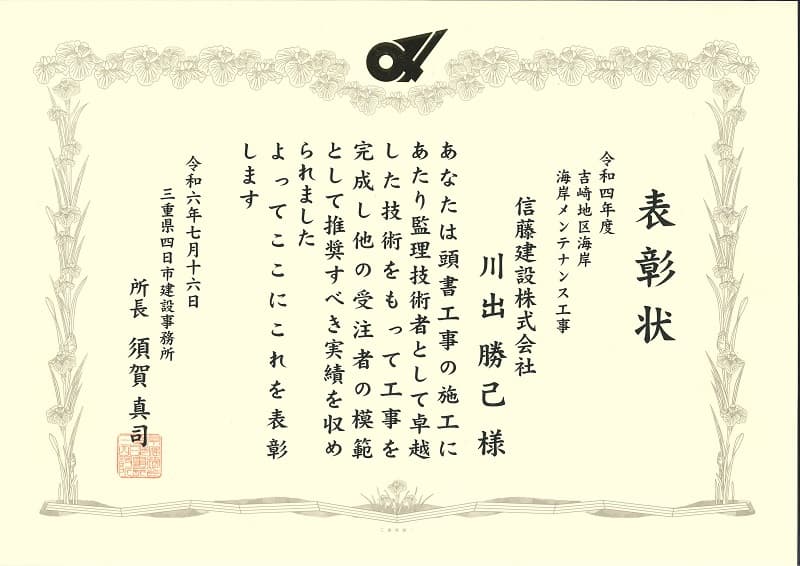 表彰状
令和四年度
吉崎地区海岸
海岸メンテナンス工事
信藤建設株式会社
川出勝己様
あなたは頭書工事の施工に
あたり監理技術者として卓越
した技術をもって工事を
完成し他の受注者の模範
として推奨すべき実績を収め
られました
よってここにこれを表彰
します
令和六年七月十六日
三重県四日市建設事務所
所長 須賀真司